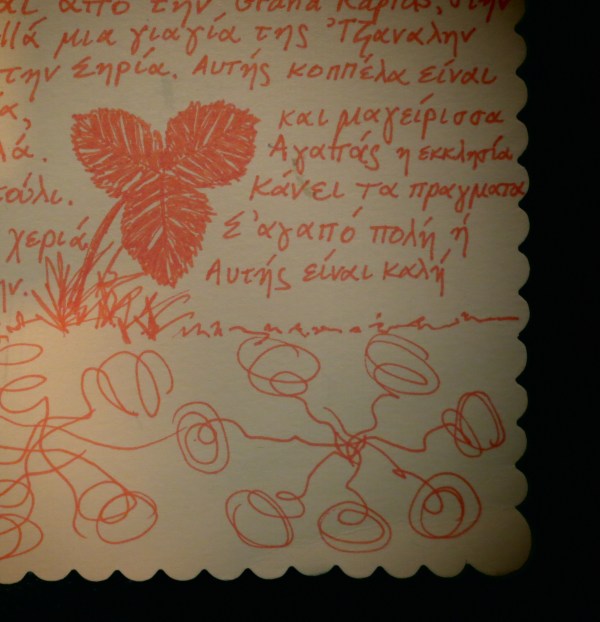 από την Grand Rapids, στην
λλά μια γιαγία της Τζαναλην
την Σηρία. Αυτής κοππέλα είναι
ά, και μαγείρισσα
λά. Αγαπάς η εκκλησία
τούλι. κάνει τα πραγματα
χεριά Σ'αγαπό πολή, ή
ην. Αυτής είναι καλή